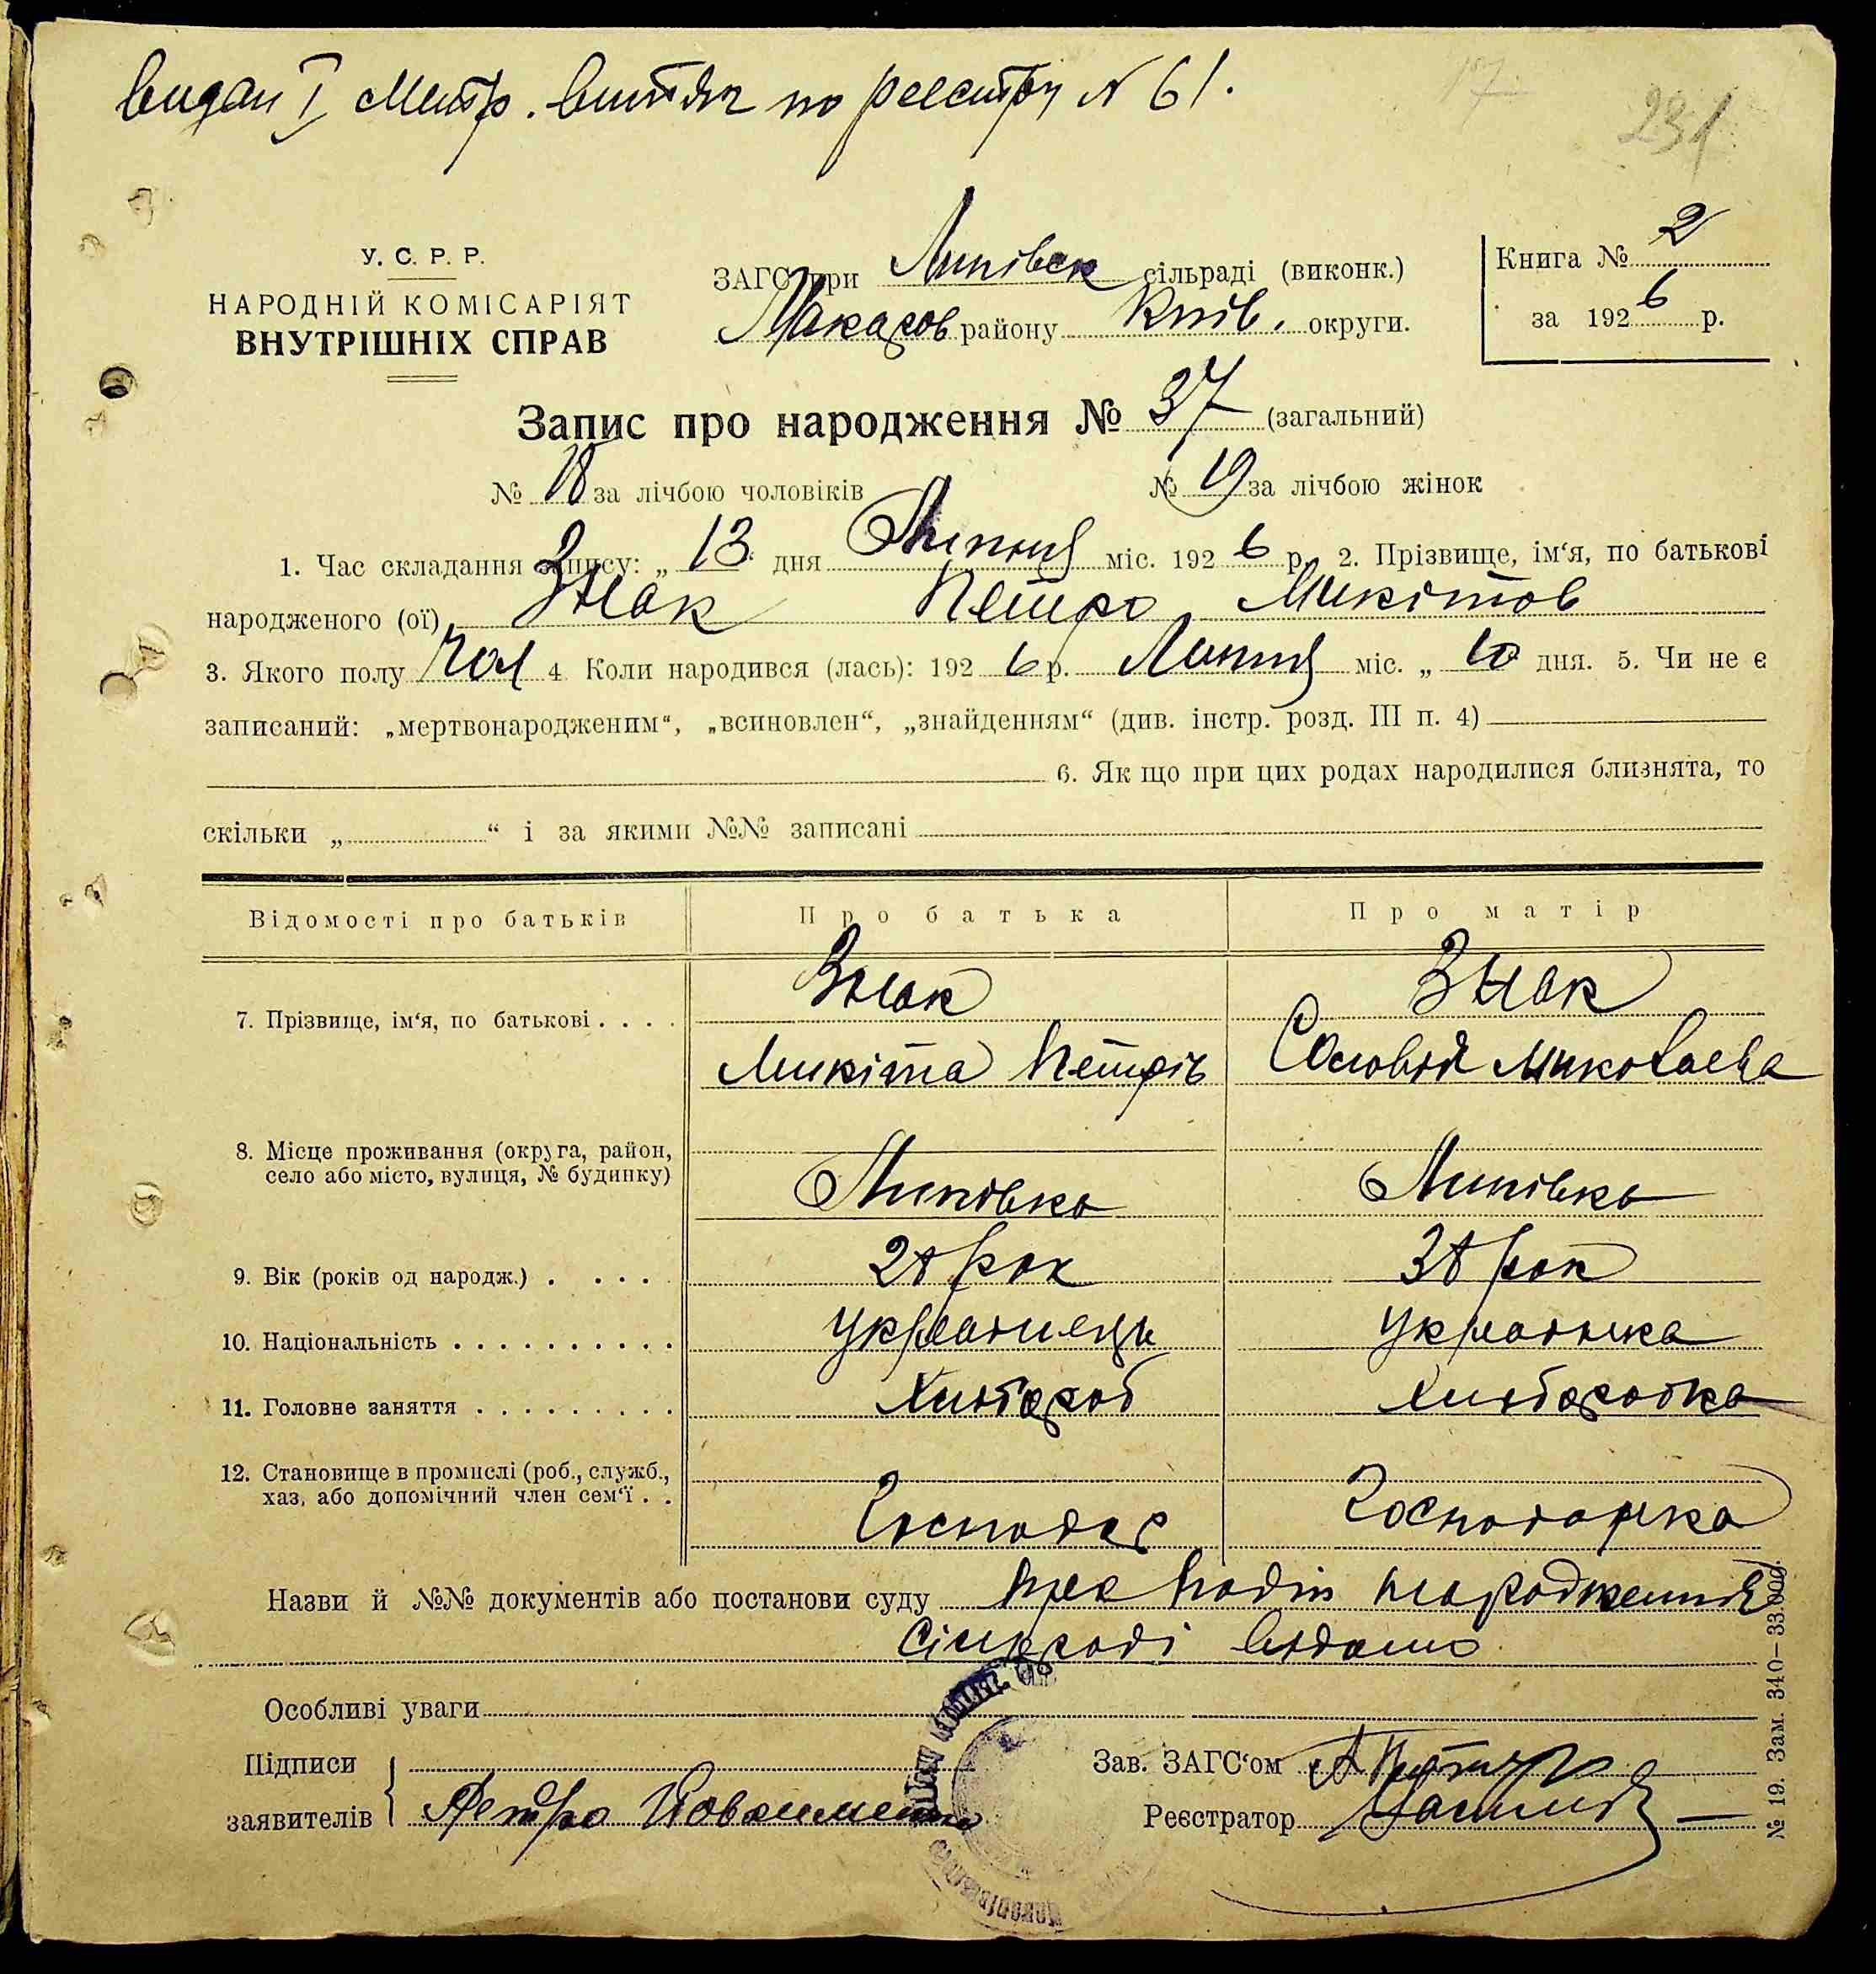 видан I Метр. витяг по реестру N 61.
17
231
У. С. Р. Р.
НАРОДНІЙ КОМІСАРІЯТ
ВНУТРІШНІХ СПРАВ
ЗАГС при Липівск сільраді (виконк.)
Макаров району Київ. округи.
Книга № 2
за 1926 р.
Запис про народження № 37 (загальний)
№ 18 за лічбою чоловіків № 19 за лічбою жінок
1. Час складання запису: „ 13 " дня Липня міс. 1926 р. 2. Прізвище, ім‘я, по батькові
народженого (ої) Знак Петро Микітов
3. Якого полу Чол 4 Коли народився (лась): 1926 р. Липня міс. „ 10 дня. 5. Чи не є
записаний: „мертвонародженим“, „всиновлен“, „знайденням“ (див. інстр. розд. III п. 4)
6. Як що при цих родах народилися близнята, то
скільки „ “ і за якими №№ записані
Відомості про батьків Про батька Про матір
7. Прізвище, ім‘я, по батькові . . . . Знак Знак
Микіта Петрів Миколаева
8. Місце проживання (округа, район,
село або місто, вулиця, № будинку) Липівка Липівка
9. Вік (років од народж.) . . . . рок рок
10. Національність . . . . . . . . . . Украинець Украинка
11. Головне заняття . . . . . . . . . Хлібороб хліборобка
12. Становище в промислі (роб., служб.,
хаз, або допомічний член сем‘ї . . Господар Господарка
Назви й №№ документів або постанови суду про народження
Сільраді відомо
Особливі уваги
Підписи
заявителів Петро
Зав. ЗАГС‘ом
Реєстратор
№ 19. Зам. 340—33.000.